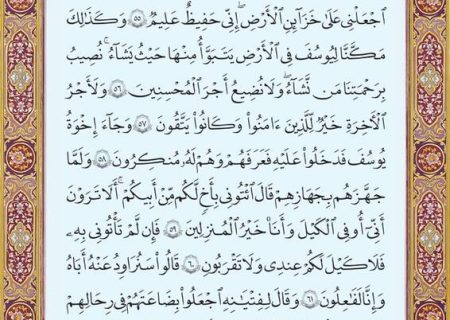 ٱجۡعَلۡنِي عَلَىٰ خَزَآئِنِ ٱلۡأَرۡضِۖ إِنِّي حَفِيظٌ عَلِيمٞ ٥٥ وَكَذَٰلِكَ
مَكَّنَّا لِيُوسُفَ فِي ٱلۡأَرۡضِ يَتَبَوَّأُ مِنۡهَا حَيۡثُ يَشَآءُۚ نُصِيبُ
بِرَحۡمَتِنَا مَن نَّشَآءُۖ وَلَا نُضِيعُ أَجۡرَ ٱلۡمُحۡسِنِينَ ٥٦ وَلَأَجۡرُ
ٱلۡأٓخِرَةِ خَيۡرٞ لِّلَّذِينَ ءَامَنُواْ وَكَانُواْ يَتَّقُونَ ٥٧ وَجَآءَ إِخۡوَةُ
يُوسُفَ فَدَخَلُواْ عَلَيۡهِ فَعَرَفَهُمۡ وَهُمۡ لَهُۥ مُنكِرُونَ ٥٨ وَلَمَّا
جَهَّزَهُم بِجَهَازِهِمۡ قَالَ ٱئۡتُونِي بِأَخٖ لَّكُم مِّنۡ أَبِيكُمۡۚ أَلَا تَرَوۡنَ
أَنِّيٓ أُوفِي ٱلۡكَيۡلَ وَأَنَا۠ خَيۡرُ ٱلۡمُنزِلِينَ ٥٩ فَإِن لَّمۡ تَأۡتُونِي بِهِۦ
فَلَا كَيۡلَ لَكُمۡ عِندِي وَلَا تَقۡرَبُونِ ٦٠ قَالُواْ سَنُرَٰوِدُ عَنۡهُ أَبَاهُ
وَإِنَّا لَفَٰعِلُونَ ٦١ وَقَالَ لِفِتۡيَٰنِهِ ٱجۡعَلُواْ بِضَٰعَتَهُمۡ فِي رِحَالِهِمۡ